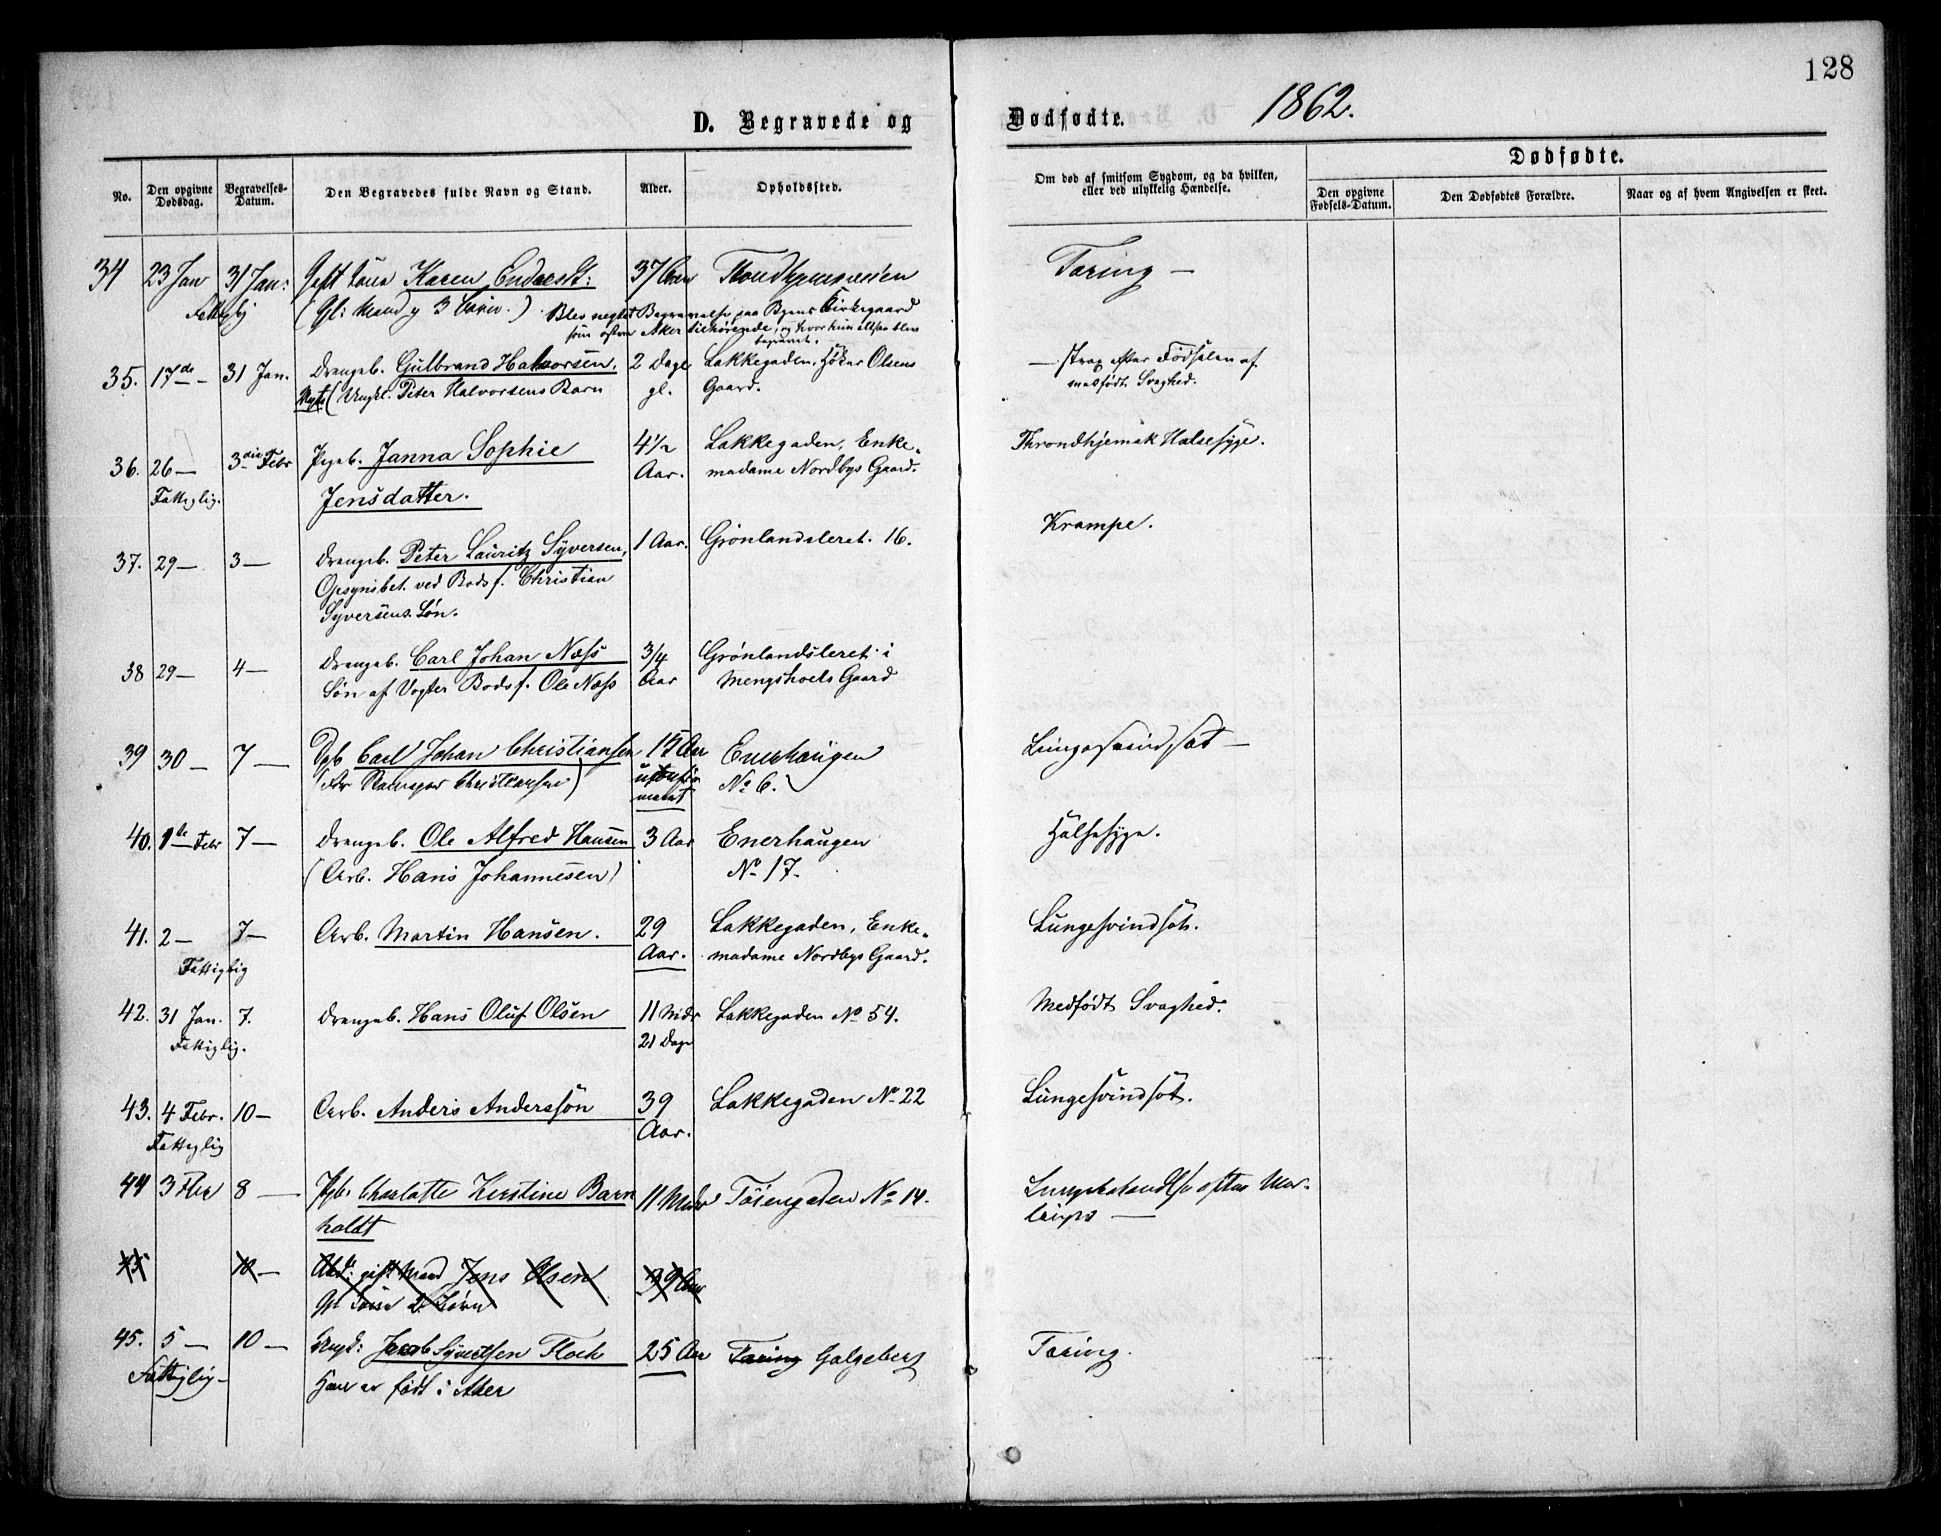 128
D. Begravede og Dødfødte. 1862.
No. Den opgivne Dødsdag. Begravelses-Datum. Den Begravedes fulde Navn og Stand. Alder. Opholdssted. Om død af smitsom Sygdom, og da hvilken, eller ved ulykkelig Hændelse. Dødfødte.
Den opgivne Fødsels-Datum. Den Dødfødtes Forældre. Naar og af hvem Angivelsen er skeet.
34 23 Jan 31 Jan: Gift Kone Karen Endresdt: 37 Aar Trondhjemsveien Tæring —
Fattiglig (Gl: Mand og 3 Børn.) Blev negtet Begravelse paa Byens Kirkegaard
som Aker tilhørende, og hvor hun altsaa blev
begravet.
35. 17de — 31 Jan. Drengeb. Gulbrand Halvorsen, 2 Dage Lakkegaden, Høker Olsens — strax efter Fødselen af
(Ungkl. Peter Halvorsens Barn gl. Gaard. medfødt Svaghed.
36. 26 — 3die Febr Pigeb. Janna Sophie 4½ Lakkegaden, Enke- Throndhjemsk Halsesyge.
Fattiglig. Jensdatter. Aar. madame Nordbys Gaard.
37. 29 — 3 — Drengeb. Peter Lauritz Syversen, 1 Aar. Grønlandsleret. 16. Krampe.
Opsynsbet. ved Bodsf. Christian
Syversens Søn.
38 29 — 4 — Drengeb. Carl Johan Næss 3/4 Grønlandsleret i
Søn af Vogter Bodsf. Ole Næss Aar Mengshoels Gaard
39 30 — 7 — Dgb Carl Johan Christiansen 15 Aar Enerhaugen Lungesvindsot —
Christiansen) No 6.
40. 1ste Febr 7 — Drengeb. Ole Alfred Hansen 3 Aar Enerhaugen Halsesyge.
(Arb. Hans Johannesen) No 17.
41. 2 — 7 — Arb. Martin Hansen. 29 Lakkegaden, Enke- Lungesvindsot.
Fattiglig Aar. madame Nordbys Gaard.
42. 31 Jan. 7. Drengeb. Hans Oluf Olsen 11 Mdr Lakkegaden No 54. Medfødt Svaghed.
Fattiglig. 21 Dage
43. 4 Febr. 10 — Arb. Anders Anderssøn 39 Lakkegaden No 22 Lungesvindsot.
Fattiglig Aar.
44 3 Febr 8 — Pgb. Charlotte Kirstine Barn 11 Mdr Tøiengaden No 14. efter Mæs-
holdt linger —
45 10 — gift Mand Jens Olsen 39 Aar
Gl Kone 2 Børn
45. 5 — 10 — Ungk: Jacob Syvertsen Floch 25 Aar Tæring Galgeberg Tæring.
Fattiglig — Han er født i Aker